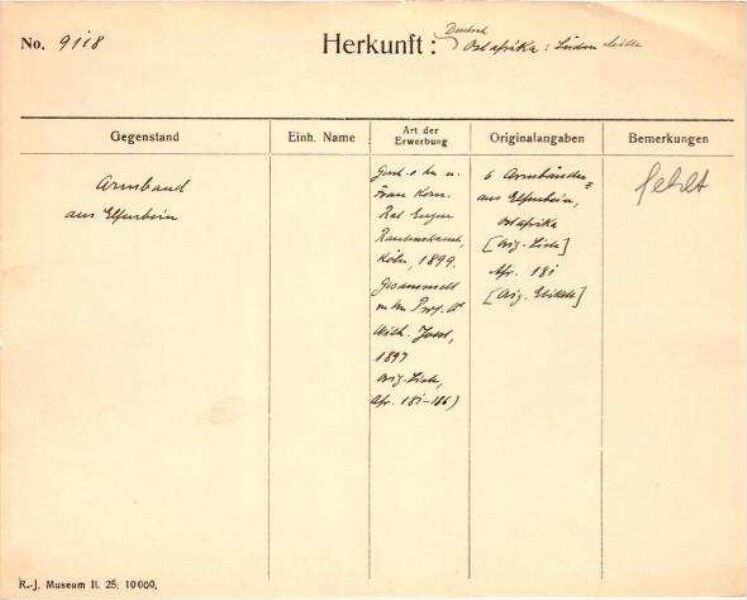 No. 9118
Herkunft: Deutsch Ostafrika: Süden
Gegenstand
Einh. Name
Art der Erwerbung
Originalangaben
Bemerkungen
Armband
aus Elfenbein
Gesch. v.
Frau Kom.
Rat Eugen
Rautenstrauch,
Köln, 1899.
Gesammelt
Prof. Dr
Wilh. Joest,
1897
Orig. Liste,
Afr. 181-186)
6 Armbänder
aus Elfenbein,
Ostafrika
[Orig. Liste]
Afr. 181
[Orig. Etikett]
fehlt
R.-J. Museum II. 25. 10000.